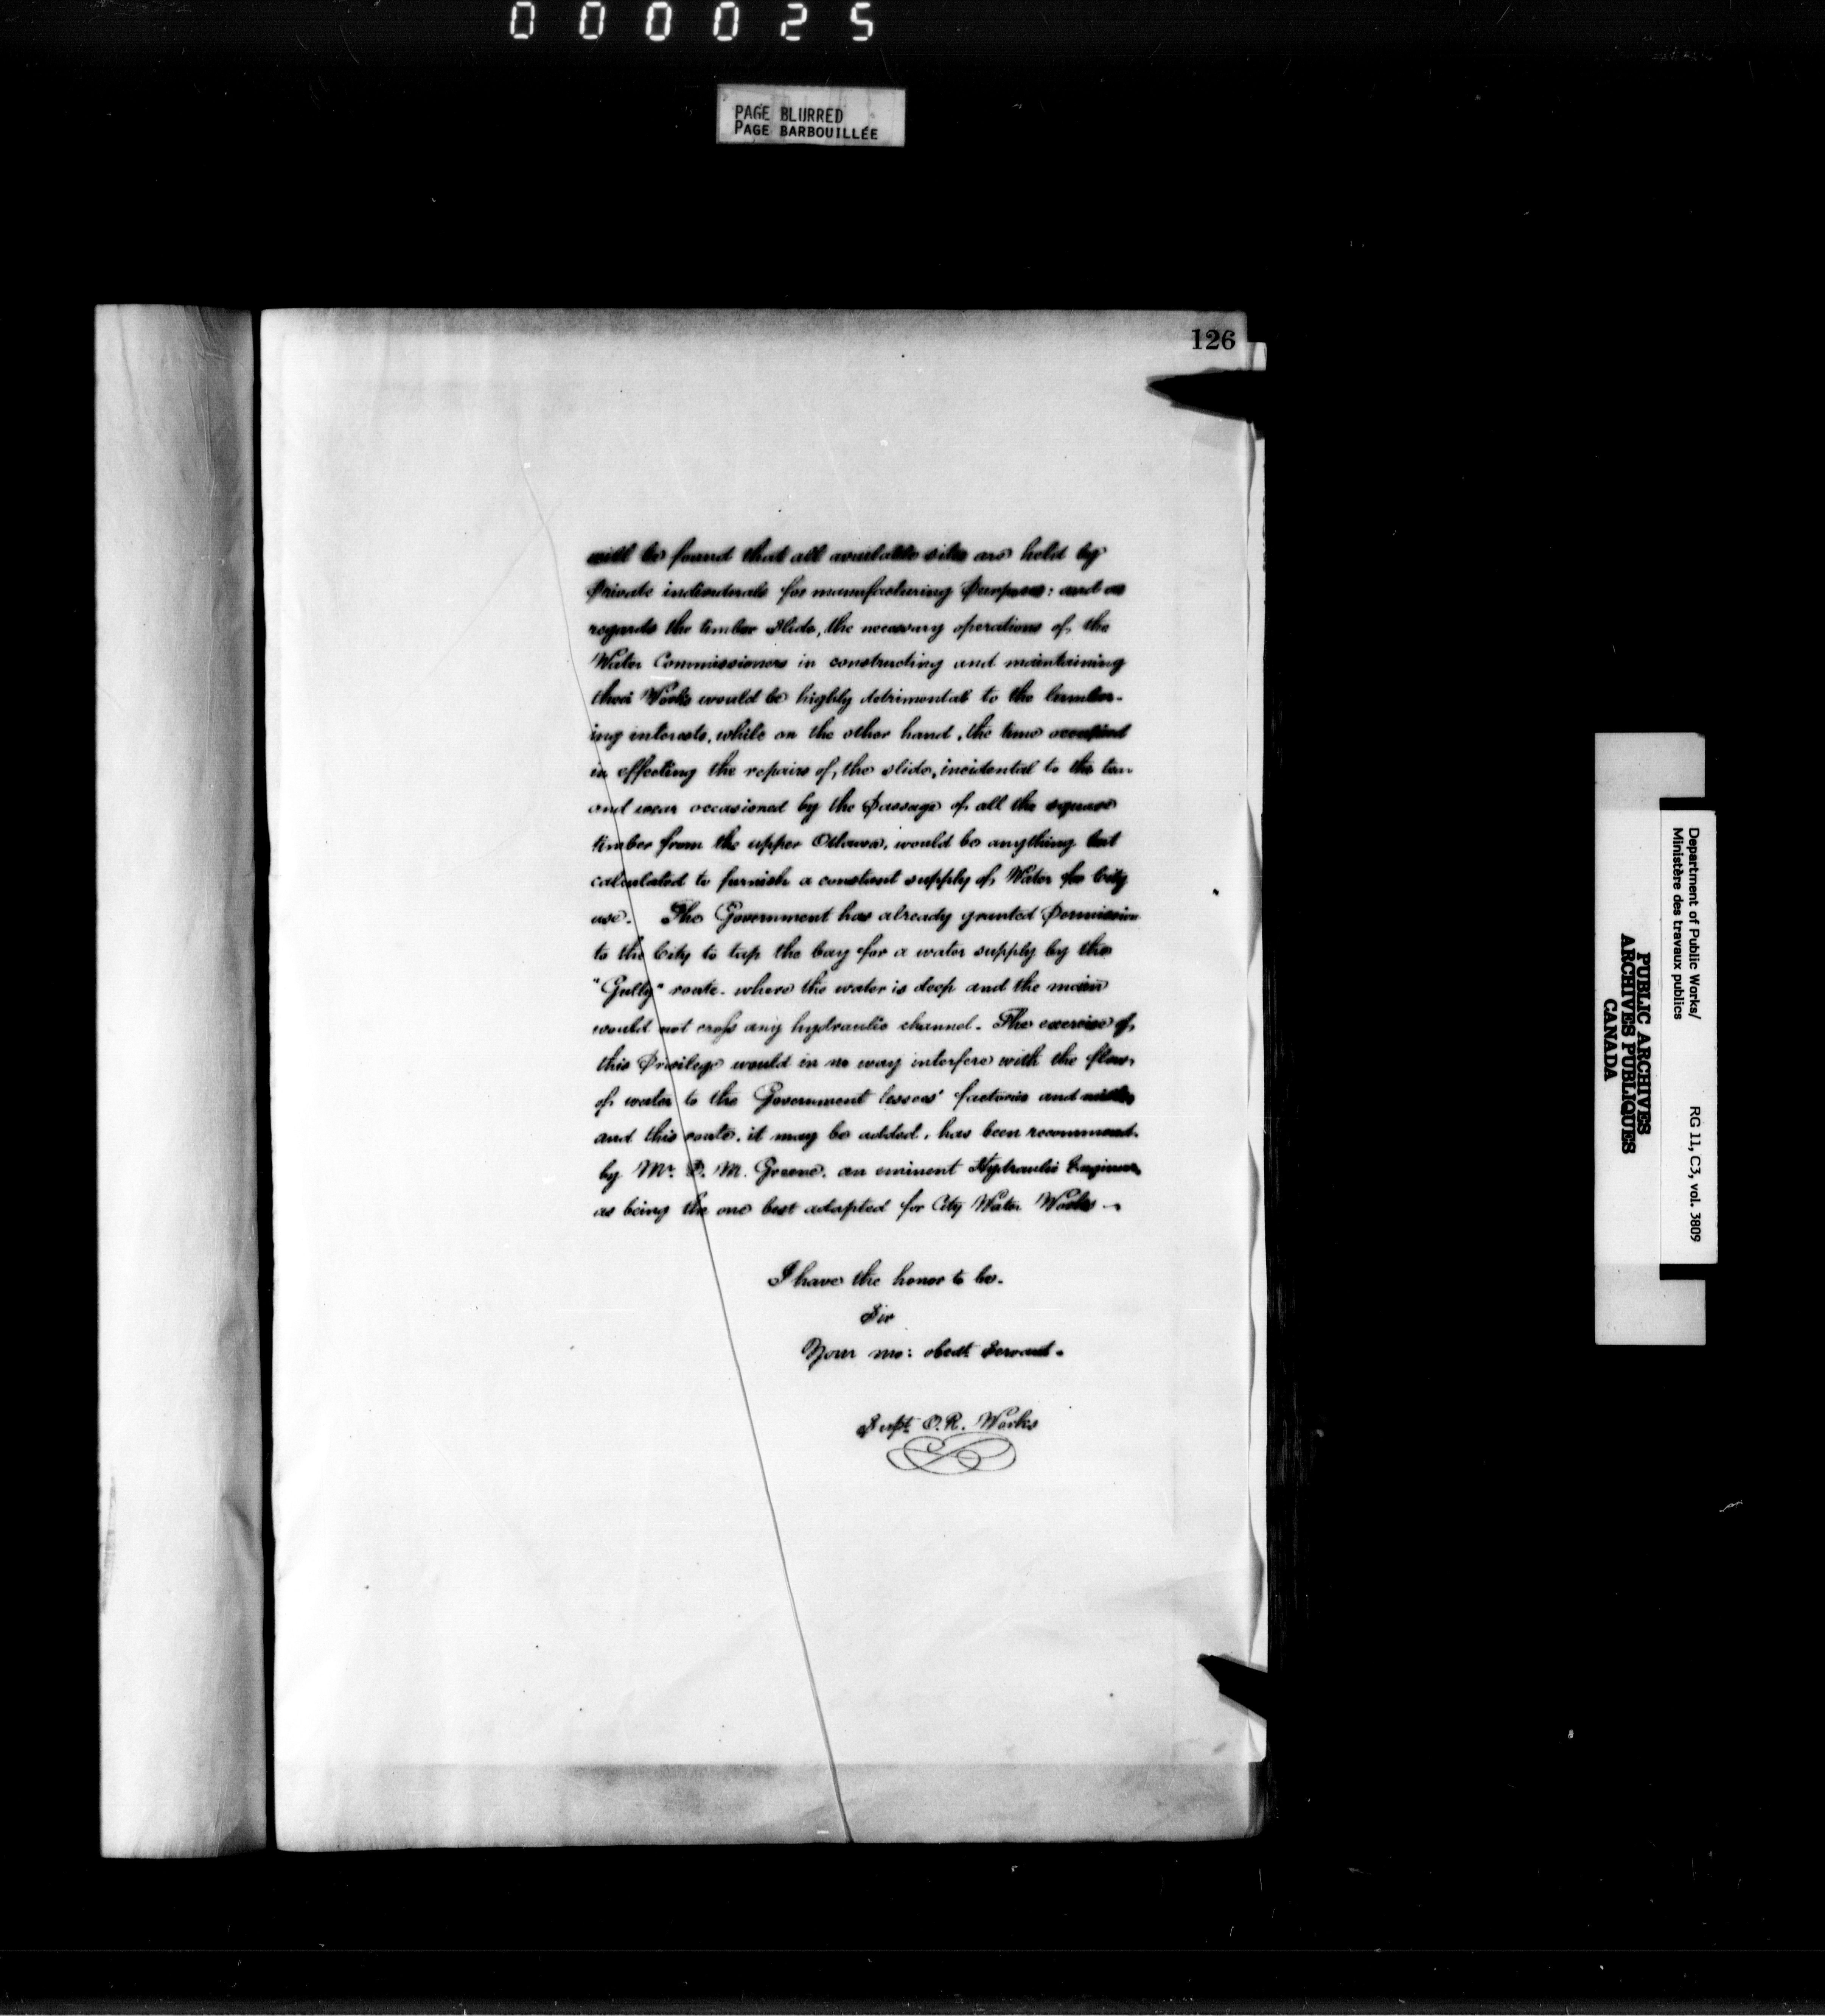 000025
PAGE BLURRED
PAGE BARBOUILLÉE
126
will be found that all available sites are held by
Private individuals for manufacturing Purposes: and as
regards the timber Slide, the necessary operations of the
Water Commissioners in constructing and maintaining
their Works would be highly detrimental to the lumber-
ing interests, while on the other hand, the time occupied
in effecting the repairs of, the slide, incidental to the tear
and wear occasioned by the Passage of all the square
timber from the upper Ottawa, would be anything but
calculated to furnish a constant supply of Water for City
use. The Government has already granted Permission
to the City to tap the bay for a water supply by the
"Gully" route. where the water is deep and the main
would not cross any hydraulic channel. The exercise of,
this Privilege would in no way interfere with the flow
of water to the Government lessees' factories and mills
and this route, it may be added, has been recommend.
by Mr. D. M. Greene. an eminent Hydraulic Engineer,
as being the one best adapted for City Water Works
I have the honor to be.
Sir
Your mo: obedt Servant.
Supt. O.R. Works
Department of Public Works/
Ministère des travaux publics
RG 11, C3, vol. 3809
PUBLIC ARCHIVES
ARCHIVES PUBLIQUES
CANADA